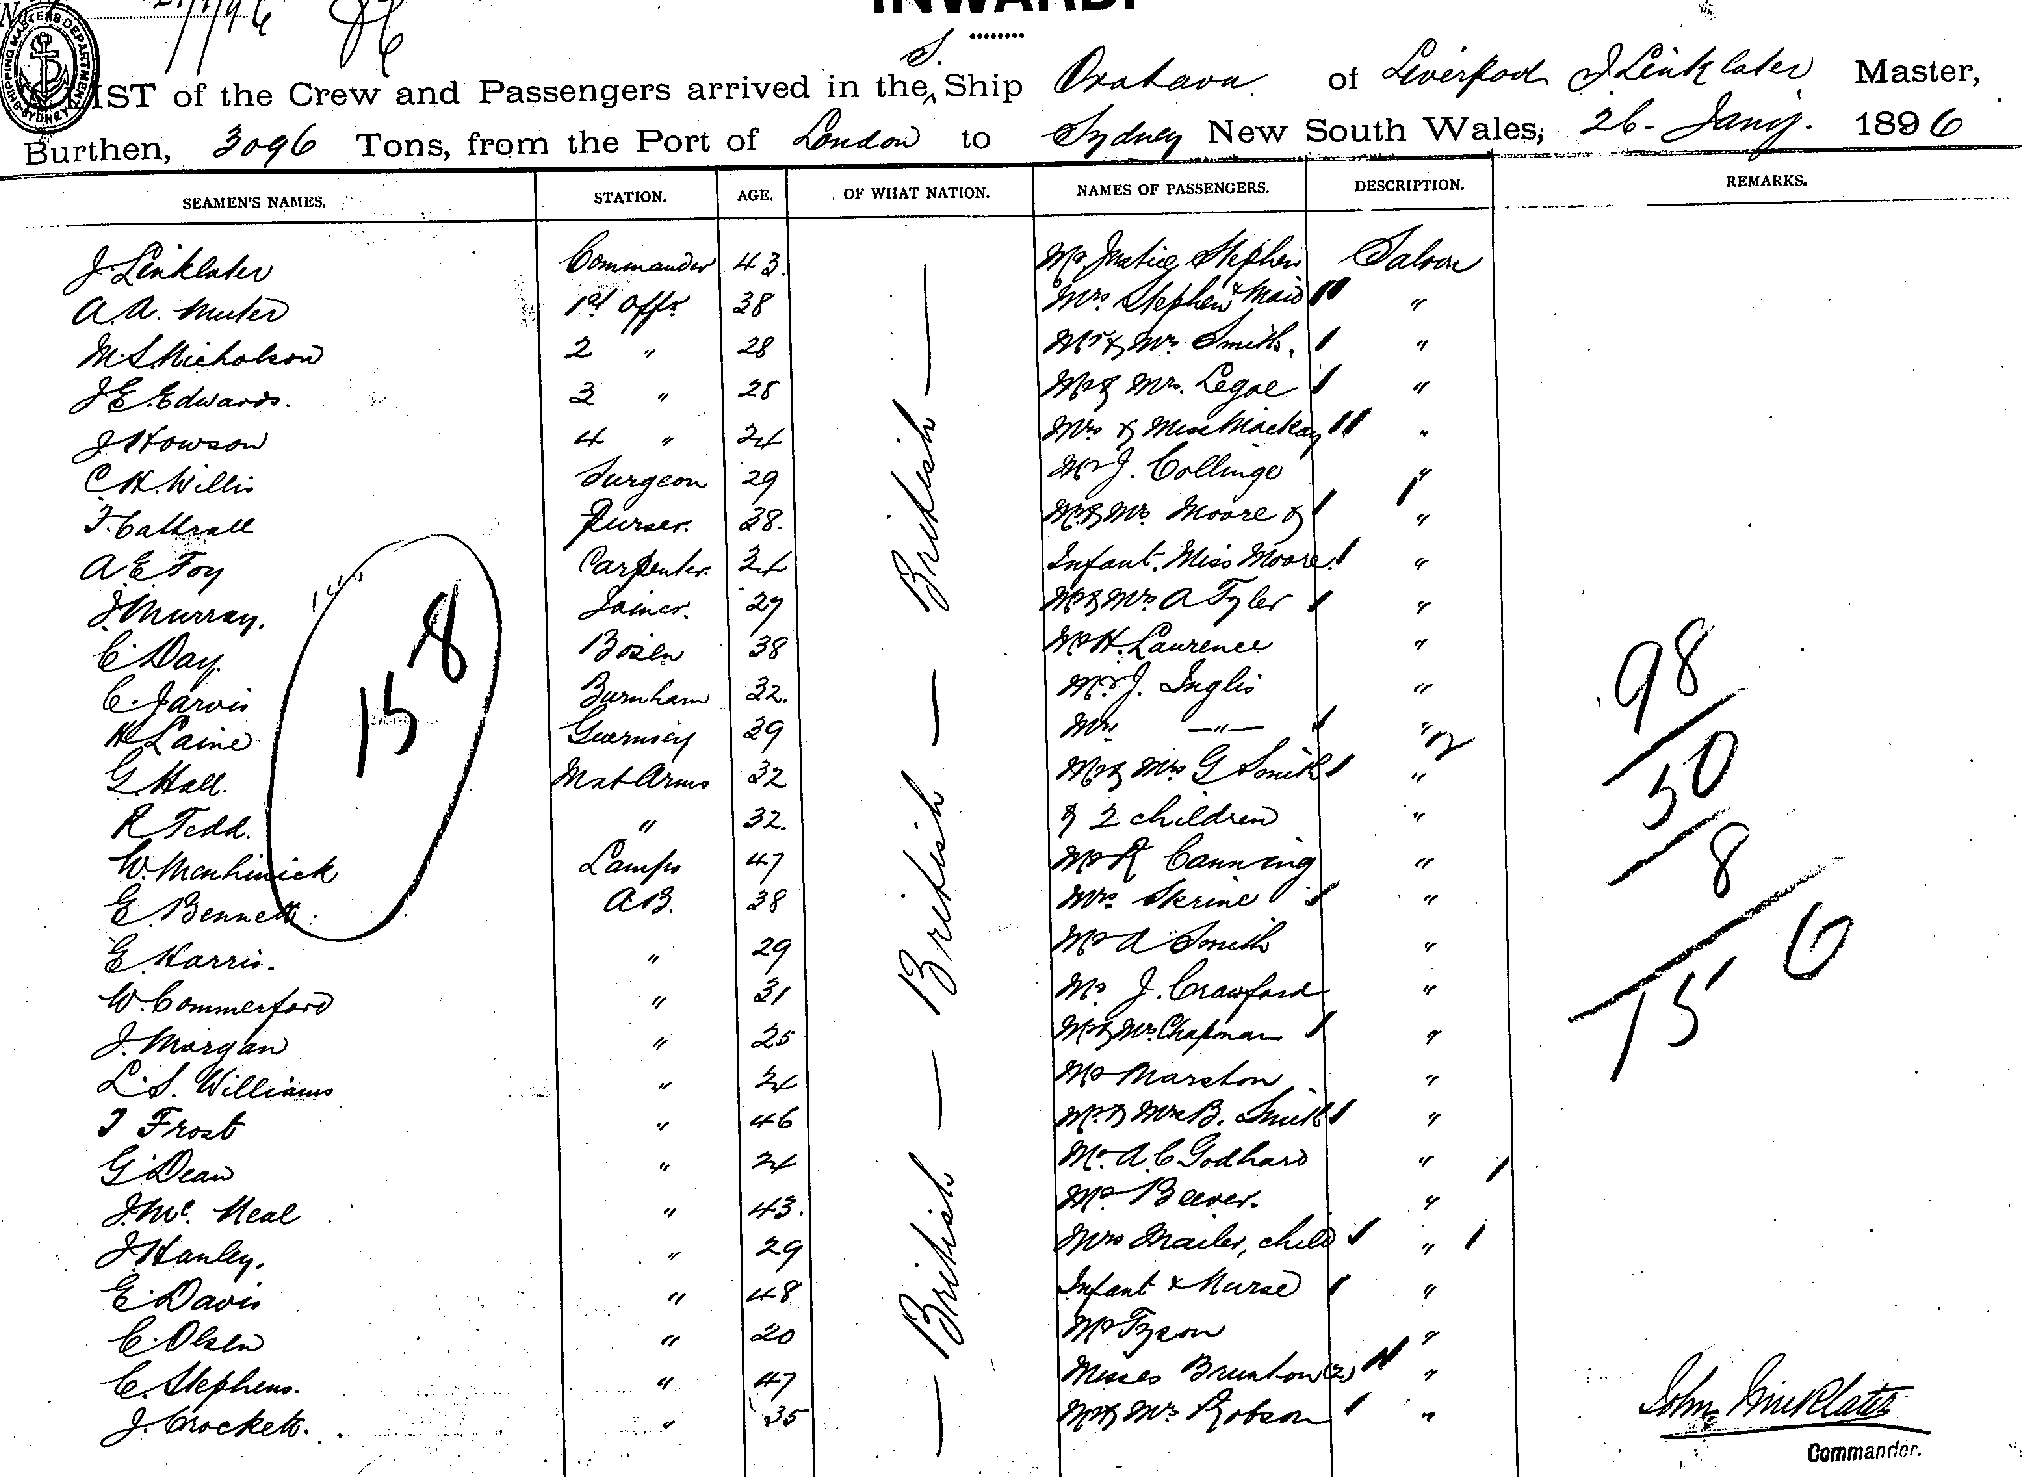 INWARD.
S.
LIST of the Crew and Passengers arrived in the Ship Orotava of Liverpool J Linklater Master,
Burthen, 3096 Tons, from the Port of London to Sydney New South Wales, 26 Jany. 1896
SEAMEN'S NAMES. STATION. AGE. OF WHAT NATION. NAMES OF PASSENGERS. DESCRIPTION. REMARKS.
J. Linklater Commander 43. Mr Justice Stephen Saloon
A. A. Muter 1st Offr 38 Mrs Stephen & Maid "
M. S. Nicholson 2 " 28 Mr & Mrs Smith. "
J. E. Edwards. 3 " 28 Mr & Mrs. Legoe "
J Howson 4 " 24 Mrs & Miss Mackay "
C. H. Willis Surgeon 29 Mr J. Collinge "
T. Cattrall Purser. 38. Mr & Mrs Moore & "
A. E. Foy Carpenter. 34 Infant. Miss Moore. "
J. Murray. Joiner. 27 Mr & Mrs A Tyler "
C. Day. Bosen 38 Mr H. Laurence "
C. Jarvis Burnham 32. Mr J. Inglis "
H Laine Guernsey 29 Mrs — " — "
G. Hall. Mat Arms 32 Mr & Mrs G Smith "
R Tedd. " 32. & 2 children "
W. Menhinick Lamps 47 Mr R Canning "
E Bennett. A.B. 38 Mrs Skrine "
G. Harris. " 29 Mr A Smith "
W. Commerford " 31 Mr J. Crawford "
J. Morgan " 25 Mr & Mrs Chapman "
L. S. Williams " 24 Mr Marston "
T Frost " 46 Mr & Mrs B. Smith "
G. Dean " 24 Mr. A. C Godhard "
J. Mc. Neal " 43. Mr Beever. "
J. Hanley. " 29 Mrs Mailer, child "
E. Davis " 48 Infant & Nurse "
C. Olsen " 20 Mr Tyson "
C. Stephens. " 47 Misses Brunton (2) "
J. Crockett. " 35 Mr & Mrs Robson "
— British — British — British —
158
98
50
8
156
John Linklater
Commander.